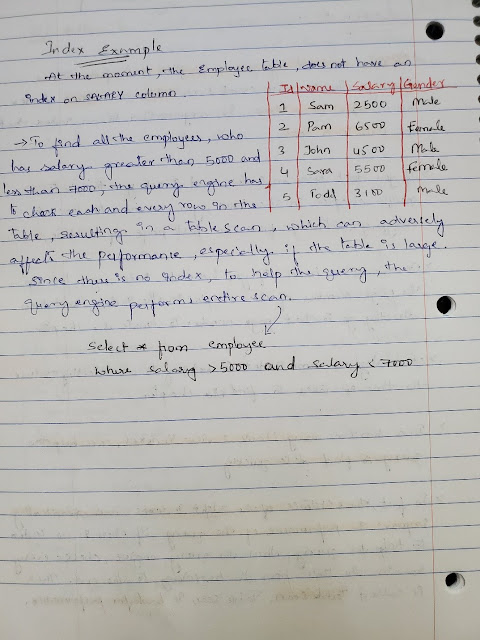 Index Example
At the moment, the Employee table, does not have an
Index on SALARY column.
Id Name Salary Gender
1 Sam 2500 Male
2 Pam 6500 Female
3 John 4500 Male
4 Sara 5500 female
5 Todd 3100 Male
→ To find all the employees, who
has salary greater than 5000 and
less than 7000, the query engine has
to check each and every row in the
table, resulting in a table scan, which can adversely
affects the performance, especially if the table is large.
Since there is no index, to help the query, the
query engine performs entire scan.
Select * from employee
where salary >5000 and salary < 7000